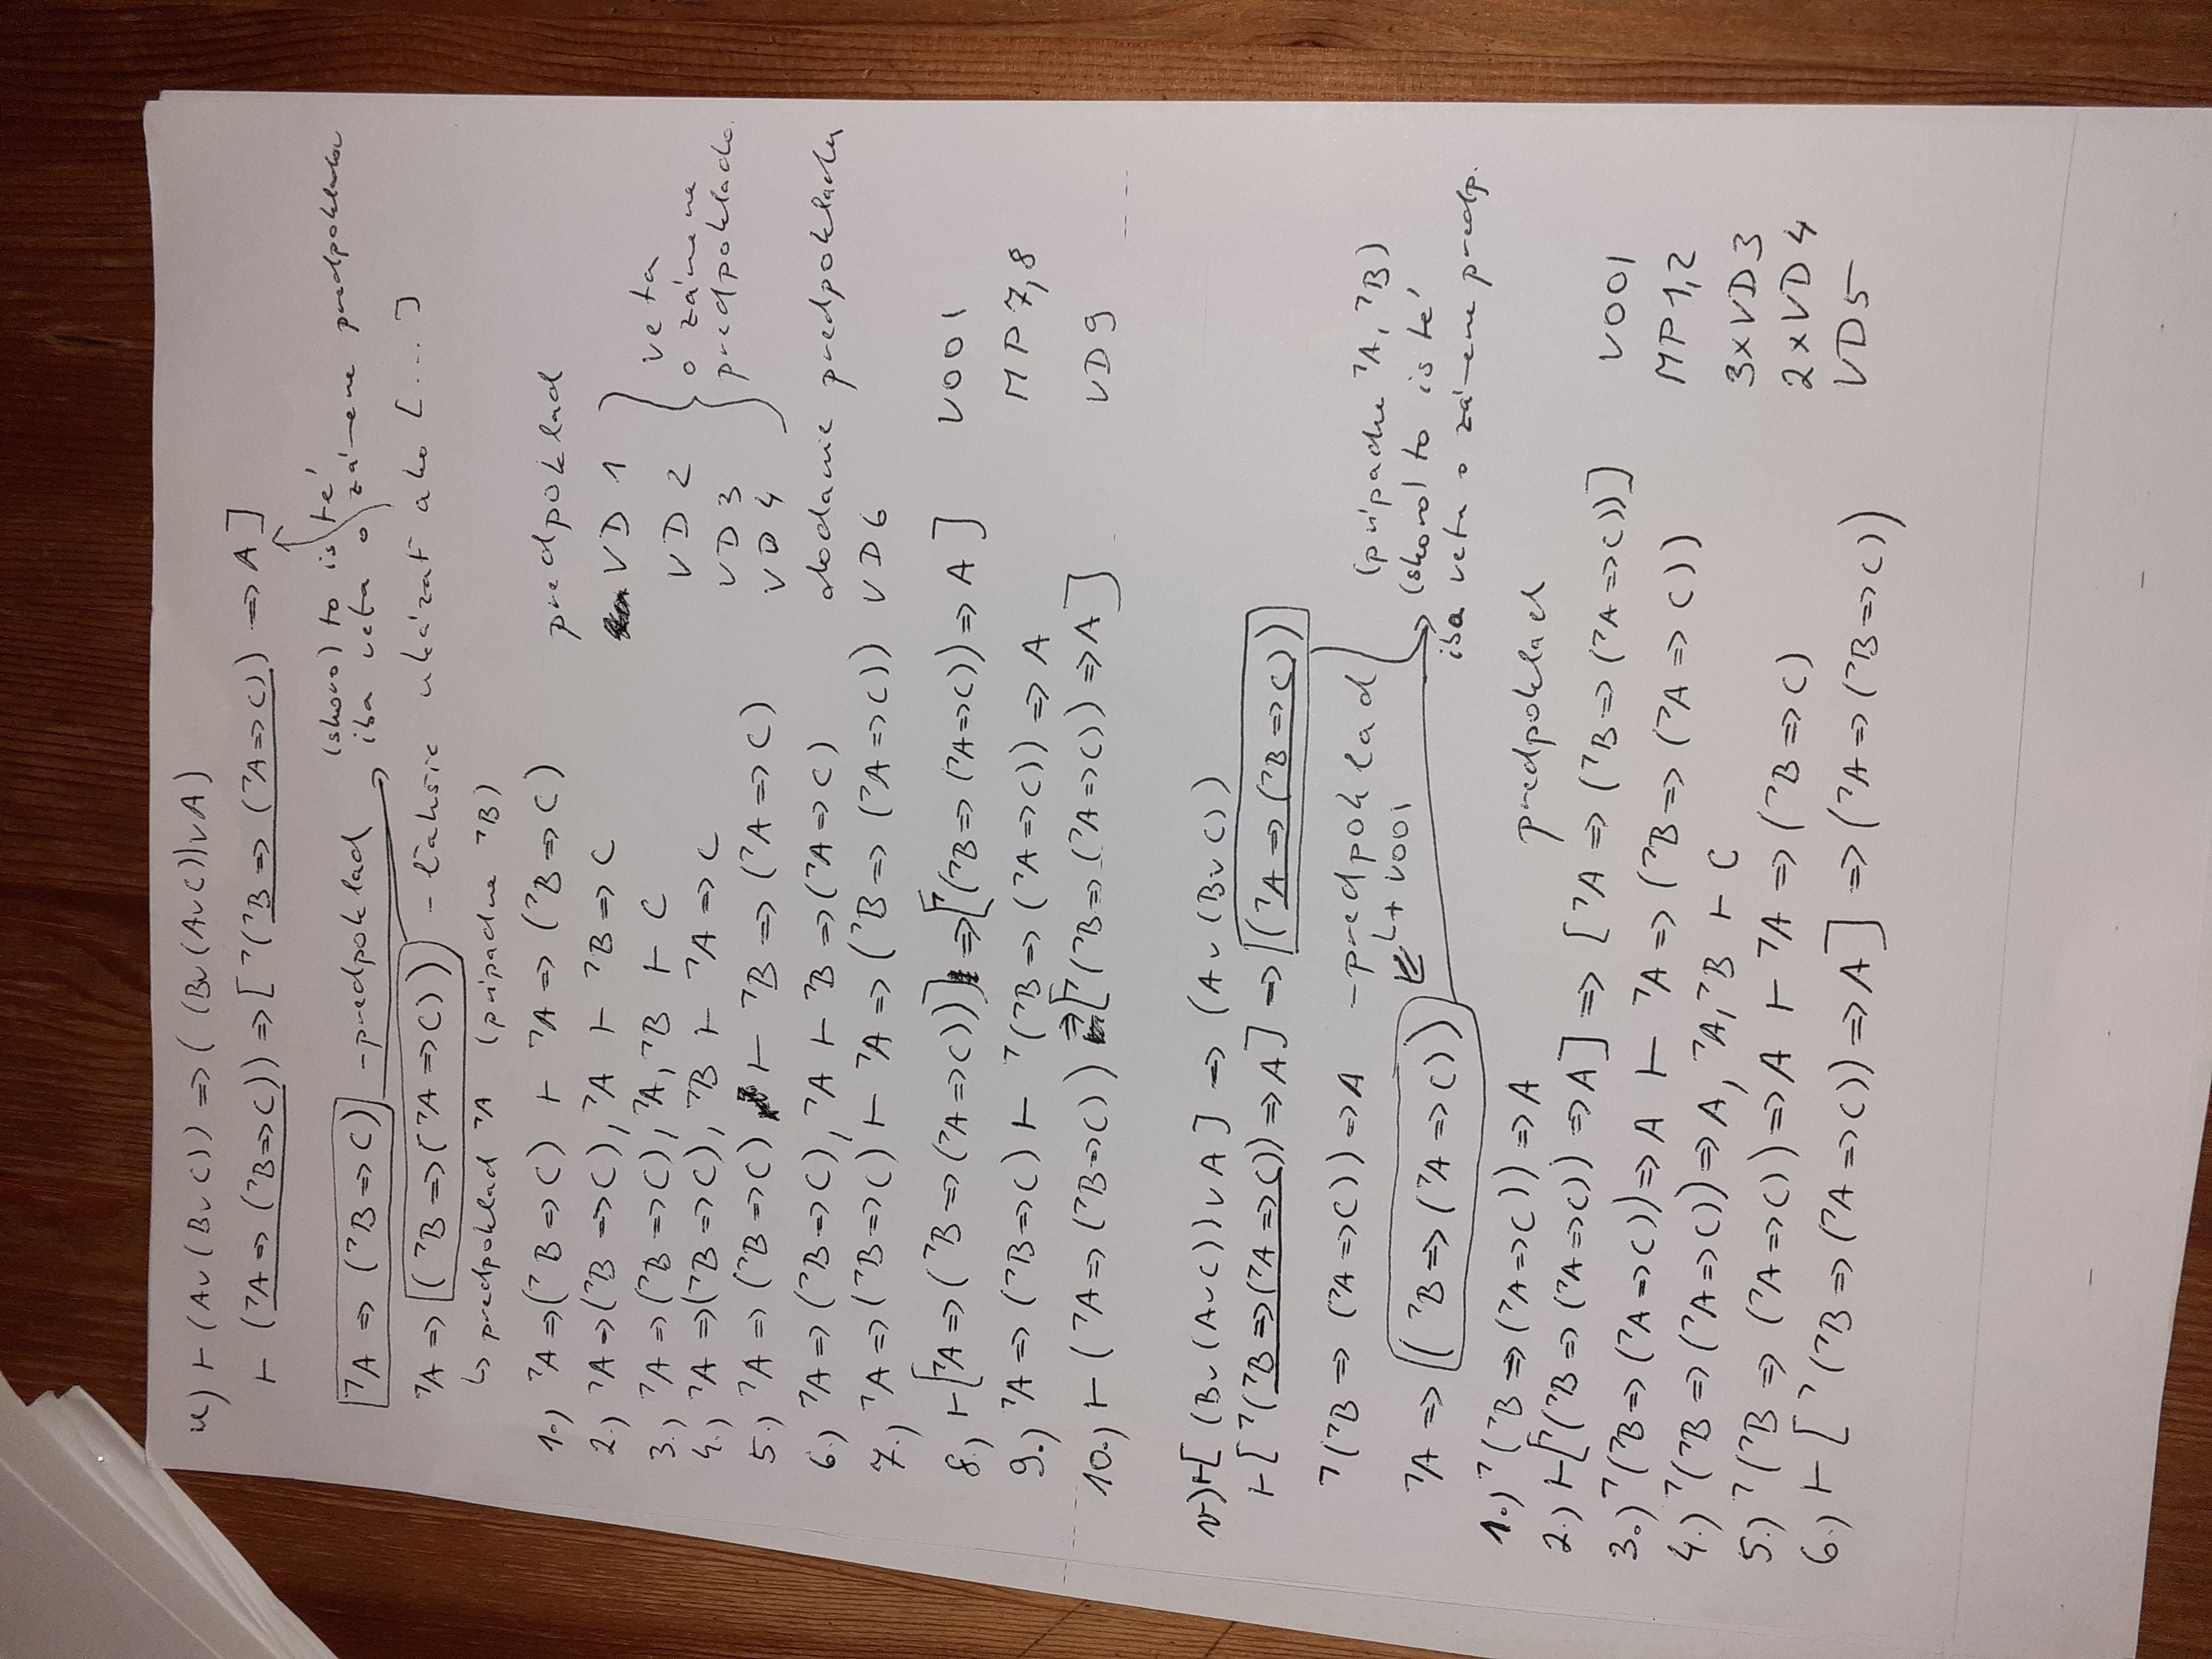 u) ⊢ (A∨(B∨C)) => ((B∨(A∨C))∨A)
⊢ (¬A => (¬B=>C)) => [¬(¬B => (¬A=>C)) => A]
¬A => (¬B=>C) - predpoklad (skoro) to isté
iba veta o zámene predpokladov
¬A => (¬B=>(¬A=>C)) - ľahšie ukázať ako [...]
↳ predpoklad ¬A (prípadne ¬B)
1.) ¬A=>(¬B=>C) ⊢ ¬A=>(¬B=>C) predpoklad
2.) ¬A=>(¬B=>C), ¬A ⊢ ¬B=>C VD 1
3.) ¬A=>(¬B=>C), ¬A, ¬B ⊢ C VD 2
4.) ¬A=>(¬B=>C), ¬B ⊢ ¬A=>C VD 3
5.) ¬A=>(¬B=>C) ⊢ ¬B=>(¬A=>C) VD 4
veta
o zámene
predpokladov
6.) ¬A=>(¬B=>C), ¬A ⊢ ¬B=>(¬A=>C) dodanie predpokladu
7.) ¬A=>(¬B=>C) ⊢ ¬A=>(¬B=>(¬A=>C)) VD6
8.) ⊢[¬A=>(¬B=>(¬A=>C))]=>[¬(¬B=>(¬A=>C))=>A] V001
9.) ¬A=>(¬B=>C) ⊢ ¬(¬B=>(¬A=>C))=>A MP7,8
10.) ⊢(¬A=>(¬B=>C))=>[¬(¬B=>(¬A=>C))=>A] VD9
v) ⊢[(B∨(A∨C))∨A] => (A∨(B∨C))
⊢[¬(¬B=>(¬A=>C))=>A] => [(¬A=>(¬B=>C))
¬(¬B=>(¬A=>C))=>A - predpoklad (prípadne ¬A, ¬B)
↳+V001 (skoro) to isté,
iba veta o zámene predp.
¬A=>[(¬B=>(¬A=>C))
1.) ¬(¬B=>(¬A=>C))=>A predpoklad
2.) ⊢[¬(¬B=>(¬A=>C))=>A] => [¬A=>(¬B=>(¬A=>C))] V001
3.) ¬(¬B=>(¬A=>C))=>A ⊢ ¬A=>(¬B=>(¬A=>C)) MP1,2
4.) ¬(¬B=>(¬A=>C))=>A, ¬A, ¬B ⊢ C 3xVD3
5.) ¬(¬B=>(¬A=>C))=>A ⊢ ¬A=>(¬B=>C) 2xVD4
6.) ⊢[¬(¬B=>(¬A=>C))=>A] => (¬A=>(¬B=>C)) VD5